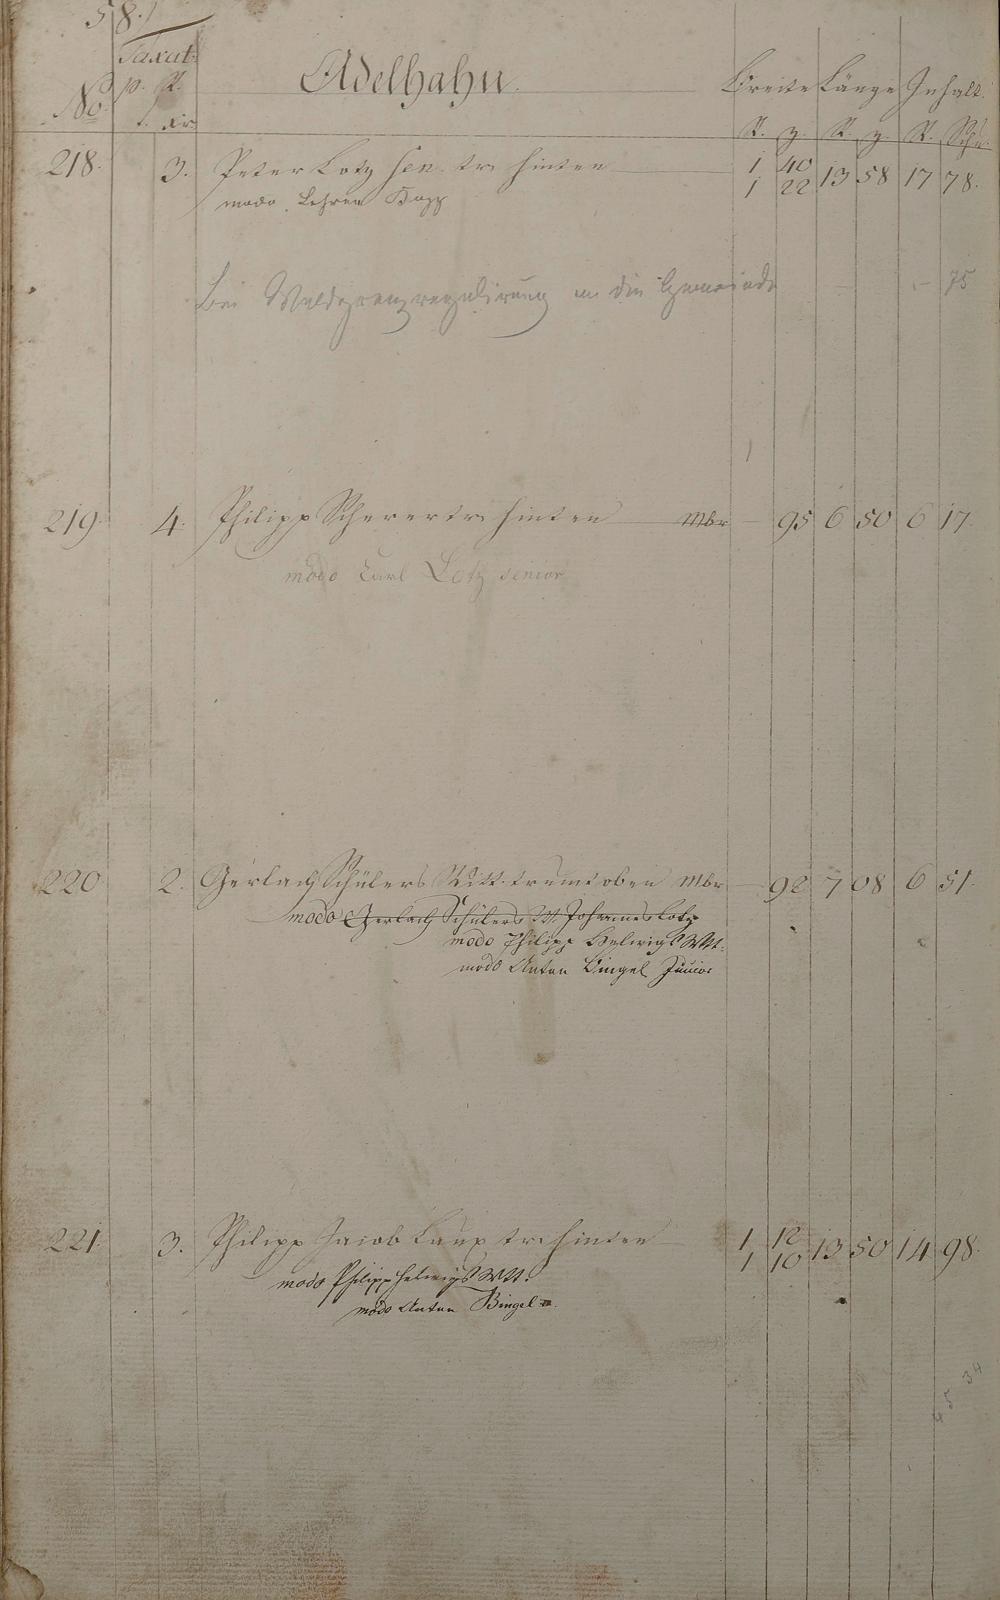 58.
Taxat:
No. p. R. Adelhahn. Breite Länge Inhalt.
xr. R. z. R. z. R. Sch.
218. 3. Peter Lotz sen. tr. hinten 1 40 13 58 17 78.
1 22
modo Lehrer Kopp
Bei Waldgrenzregulirung an die Gemeinde - 75
219. 4. Philipp Scherer tr. hinten Mbr - 95 6 50 6 17.
modo Carl Lotz senior
220 2. Gerlach Schülers Witt. trumt oben Mbr - 92 7 08 6 51.
modo Gerlach Schülers W. Johannes Lotz
modo Philipp Helwigs Wtt.
modo Anton Bingel Junior
221. 3. Philipp Jacob Laux tr. hinten 1 12 13 50 14 98.
1 10
modo Philipp Helwigs Wtt.
modo Anton Bingel
45 34